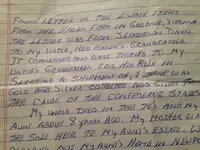 FOUND LETTER IN THE ESTATE ITEMS
FROM THE HOUSE IN GALENA, VIRGINIA
THE LETTER WAS FROM JEFFERSON DAVIS
TO MY UNCLE, GRANDFATHER
IT COMMENDED AND GAVE THANKS TO MY
UNCLE'S GRANDFATHER FOR HIS ROLE IN
A SHIPMENT OF
GOLD AND SILVER GATHERED AND GIVEN TO
THE CAUSE OF THE CONFEDERATE STATES
MY UNCLE DIED IN THE 70'S AND MY
AUNT ABOUT 2 YEARS AGO. MY MOTHER
THE SOLE HEIR TO MY AUNT'S ESTATE.
OUT MY AUNT'S HOME IN